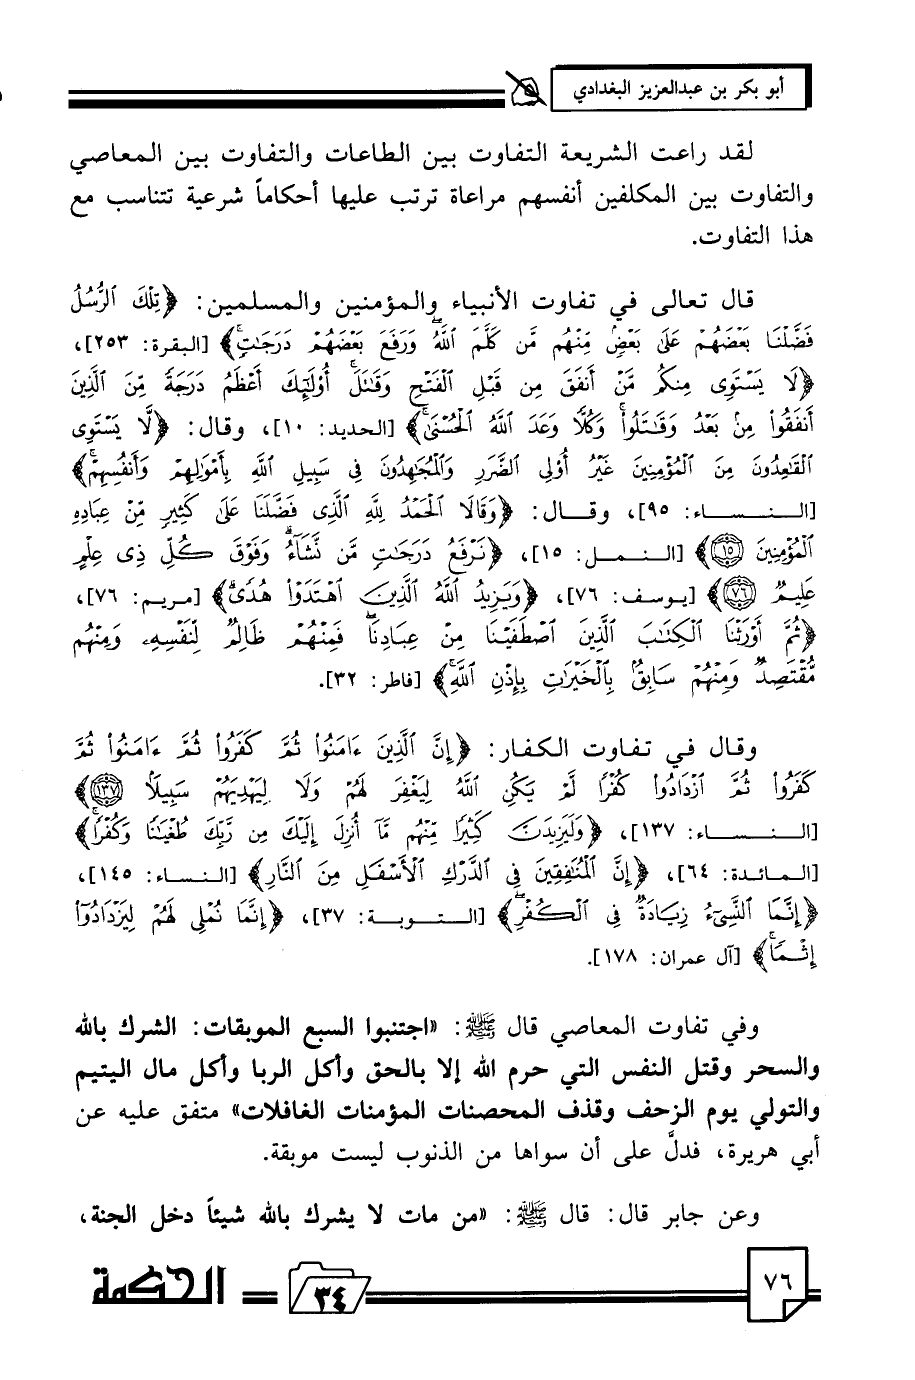 أبو بكر بن عبدالعزيز البغدادي
لقد راعت الشريعة التفاوت بين الطاعات والتفاوت بين المعاصي
والتفاوت بين المكلفين أنفسهم مراعاة ترتب عليها أحكاماً شرعية تتناسب مع
هذا التفاوت.
قال تعالى في تفاوت الأنبياء والمؤمنين والمسلمين: ﴿تِلْكَ ٱلرُّسُلُ
فَضَّلْنَا بَعْضَهُمْ عَلَىٰ بَعْضٍ مِّنْهُم مَّن كَلَّمَ ٱللَّهُ وَرَفَعَ بَعْضَهُمْ دَرَجَٰتٍ﴾ [البقرة: ٢٥٣]،
﴿لَا يَسْتَوِى مِنكُم مَّنْ أَنفَقَ مِن قَبْلِ ٱلْفَتْحِ وَقَٰتَلَ أُو۟لَٰٓئِكَ أَعْظَمُ دَرَجَةً مِّنَ ٱلَّذِينَ
أَنفَقُوا۟ مِنۢ بَعْدُ وَقَٰتَلُوا۟ وَكُلًّا وَعَدَ ٱللَّهُ ٱلْحُسْنَىٰ﴾ [الحديد: ١٠]، وقال: ﴿لَّا يَسْتَوِى
ٱلْقَٰعِدُونَ مِنَ ٱلْمُؤْمِنِينَ غَيْرُ أُو۟لِى ٱلضَّرَرِ وَٱلْمُجَٰهِدُونَ فِى سَبِيلِ ٱللَّهِ بِأَمْوَٰلِهِمْ وَأَنفُسِهِمْ﴾
[النساء: ٩٥]، وقال: ﴿وَقَالَا ٱلْحَمْدُ لِلَّهِ ٱلَّذِى فَضَّلَنَا عَلَىٰ كَثِيرٍ مِّنْ عِبَادِهِ
ٱلْمُؤْمِنِينَ ١٥﴾ [النمل: ١٥]، ﴿نَرْفَعُ دَرَجَٰتٍ مَّن نَّشَآءُ وَفَوْقَ كُلِّ ذِى عِلْمٍ
عَلِيمٌ ٧٦﴾ [يوسف: ٧٦]، ﴿وَيَزِيدُ ٱللَّهُ ٱلَّذِينَ ٱهْتَدَوْا۟ هُدًى﴾ [مريم: ٧٦]،
﴿ثُمَّ أَوْرَثْنَا ٱلْكِتَٰبَ ٱلَّذِينَ ٱصْطَفَيْنَا مِنْ عِبَادِنَا فَمِنْهُمْ ظَالِمٌ لِّنَفْسِهِۦ وَمِنْهُم
مُّقْتَصِدٌ وَمِنْهُمْ سَابِقٌۢ بِٱلْخَيْرَٰتِ بِإِذْنِ ٱللَّهِ﴾ [فاطر: ٣٢].
وقال في تفاوت الكفار: ﴿إِنَّ ٱلَّذِينَ ءَامَنُوا۟ ثُمَّ كَفَرُوا۟ ثُمَّ ءَامَنُوا۟ ثُمَّ
كَفَرُوا۟ ثُمَّ ٱزْدَادُوا۟ كُفْرًا لَّمْ يَكُنِ ٱللَّهُ لِيَغْفِرَ لَهُمْ وَلَا لِيَهْدِيَهُمْ سَبِيلًا ١٣٧﴾
[النساء: ١٣٧]، ﴿وَلَيَزِيدَنَّ كَثِيرًا مِّنْهُم مَّآ أُنزِلَ إِلَيْكَ مِن رَّبِّكَ طُغْيَٰنًا وَكُفْرًا﴾
[المائدة: ٦٤]، ﴿إِنَّ ٱلْمُنَٰفِقِينَ فِى ٱلدَّرْكِ ٱلْأَسْفَلِ مِنَ ٱلنَّارِ﴾ [النساء: ١٤٥]،
﴿إِنَّمَا ٱلنَّسِىٓءُ زِيَادَةٌ فِى ٱلْكُفْرِ﴾ [التوبة: ٣٧]، ﴿إِنَّمَا نُمْلِى لَهُمْ لِيَزْدَادُوٓا۟
إِثْمًا﴾ [آل عمران: ١٧٨].
وفي تفاوت المعاصي قال ﷺ: «اجتنبوا السبع الموبقات: الشرك بالله
والسحر وقتل النفس التي حرم الله إلا بالحق وأكل الربا وأكل مال اليتيم
والتولي يوم الزحف وقذف المحصنات المؤمنات الغافلات» متفق عليه عن
أبي هريرة، فدلَّ على أن سواها من الذنوب ليست موبقة.
وعن جابر قال: قال ﷺ: «من مات لا يشرك بالله شيئاً دخل الجنة،
٧٦
٣٤
الحكمة